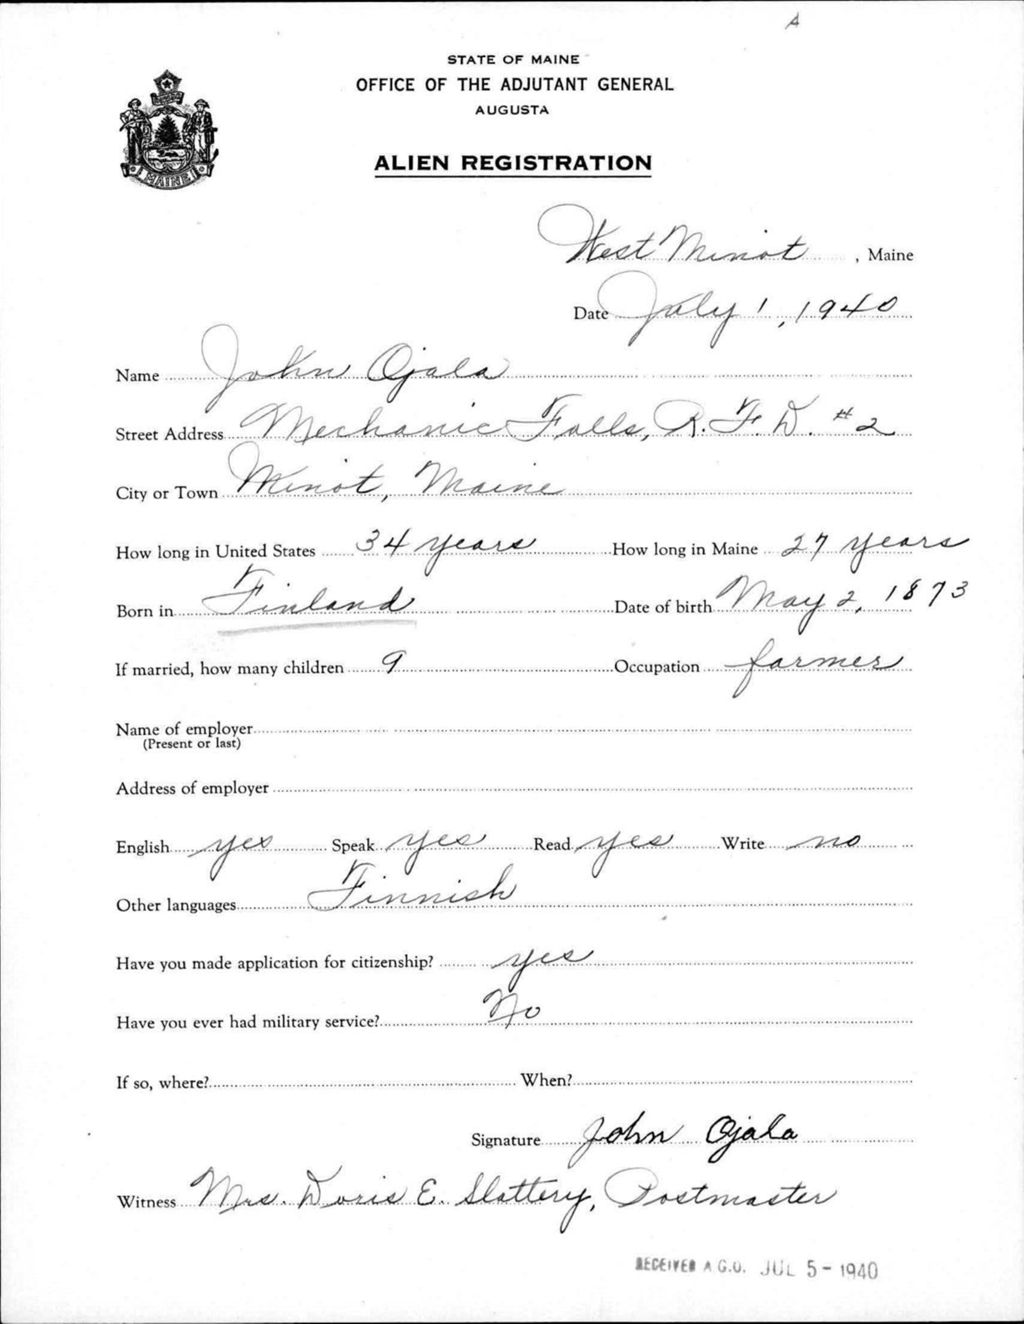 A
STATE OF MAINE
OFFICE OF THE ADJUTANT GENERAL
AUGUSTA
ALIEN REGISTRATION
MAINE
West Minot, Maine
Date July 1, 1940
Name John Ojala
Street Address Mechanic Falls, R.F.D. #2
City or Town Minot, Maine
How long in United States 34 years How long in Maine 27 years
Born in Finland Date of birth May 2, 1873
If married, how many children 9 Occupation farmer
Name of employer
(Present or last)
Address of employer
English yes Speak yes Read yes Write no
Other languages Finnish
Have you made application for citizenship? yes
Have you ever had military service? No
If so, where? When?
Signature John Ojala
Witness Mrs. Doris E. Slattery, Postmaster
RECEIVED A.G.O. JUL 5 - 1940